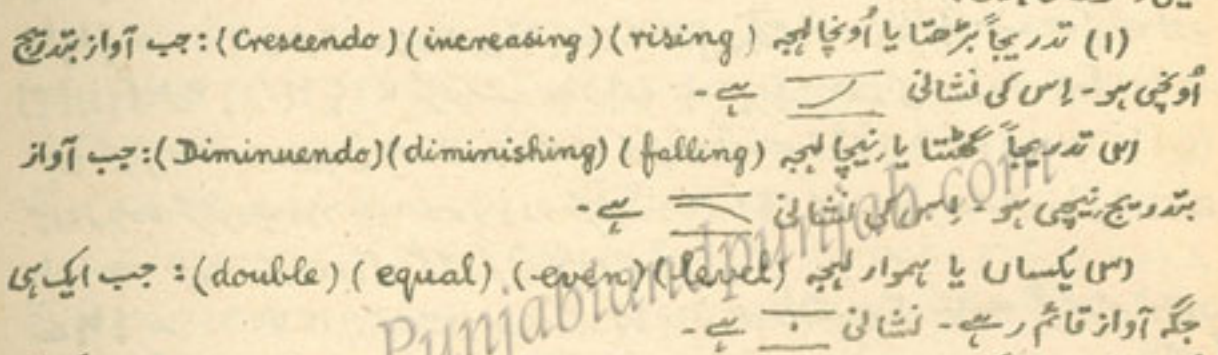 (۱) تدریجاً بڑھتا یا اُونچا لہجہ (rising) (increasing) (Crescendo): جب آواز بتدریج
اُونچی ہو۔ اِس کی نشانی ہے۔
(۲) تدریجاً گھٹتا یا نیچا لہجہ (falling) (diminishing) (Diminuendo): جب آواز
بتدریج نیچی ہو۔ اِس کی نشانی ہے۔
(۳) یکساں یا ہموار لہجہ (level) (even) (equal) (double): جب ایک ہی
جگہ آواز قائم رہے۔ نشانی ہے۔
Punjabiandpunjab.com